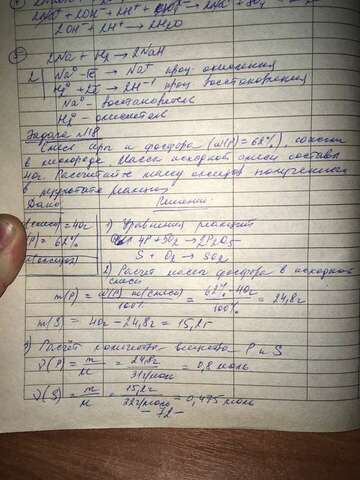 2OH⁻ + 2H⁺ → 2H₂O
2Na + H₂ → 2NaH
2 | Na⁰ - 1e → Na⁺ проц. окисления
H₂⁰ + 2e → 2H⁻¹ проц восстановления
Na⁰ - восстановитель
H₂⁰ - окислитель
Задача №18
Смесь серы и фосфора (ω(P) = 62%), сожгли
в кислороде. Масса исходной смеси составл
40г. Рассчитайте массу оксидов полученных
в результате реакции
Дано Решение
(смеси) = 40г 1) Уравнения реакций
(P) = 62% 4P + 5O₂ → 2P₂O₅
m(оксидов) S + O₂ → SO₂
2) Расчет массы фосфора в исходной
смеси
m(P) = ω(P) · m(смеси) / 100% = 62% · 40г / 100% = 24,8г
m(S) = 40г - 24,8г = 15,2г
3) Расчет количества вещества P и S
ν(P) = m/M = 24,8г / 31г/моль = 0,8 моль
ν(S) = m/M = 15,2г / 32г/моль = 0,475 моль
- 72 -